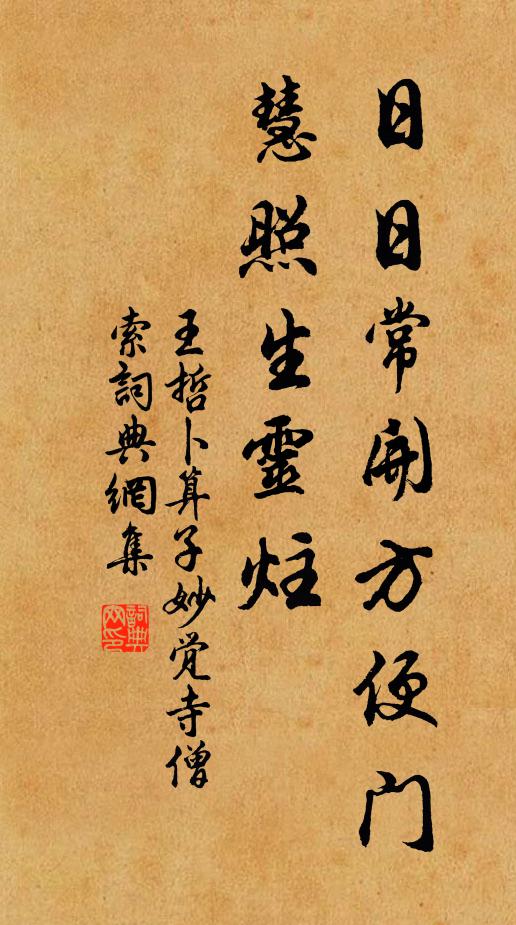 日日常開方便門
慧照生靈炷
王哲卜算子妙觉寺僧
索詞典網集
詞典網印